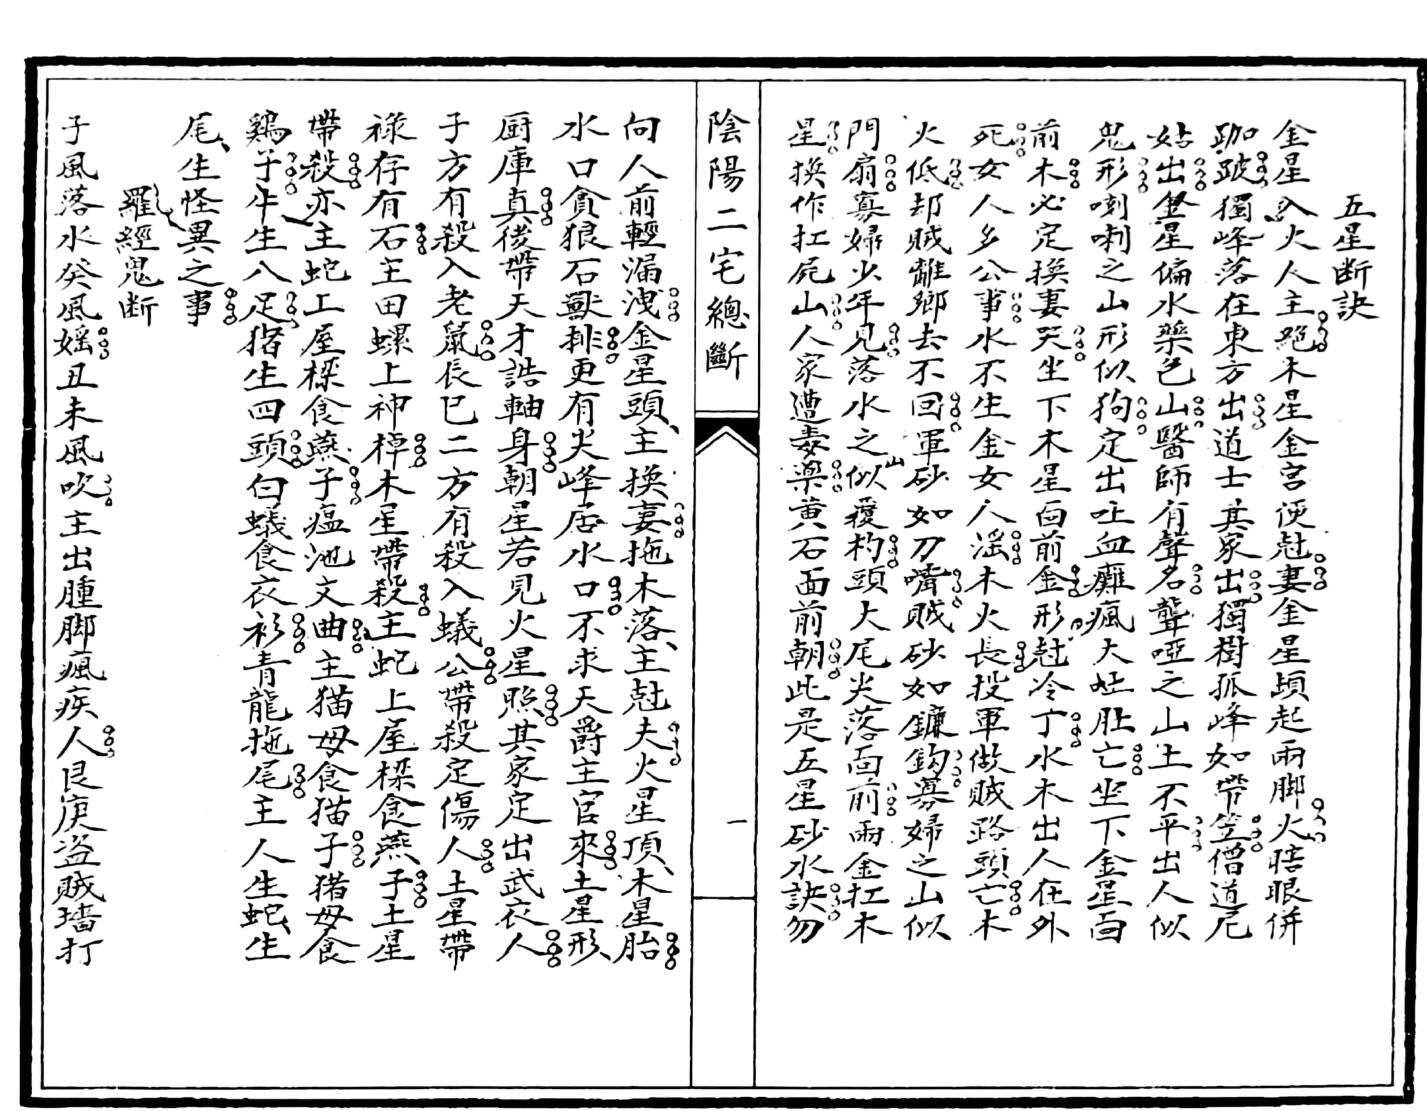 五星断訣
金星入火人主絕木星金宮便尅妻金星頃起兩脚火瞎眼併
跏跛獨峰落在東方出道士其家出獨樹孤峰如带笠僧道尼
姑出金星偏水藥包山醫師有聲名聾啞之山土不平出人似
鬼形喇喇之山形似狗定出吐血癱瘋大蛀肚亡坐下金星面
前木必定換妻哭坐下木星面前金形尅冷丁水木出人在外
死女人乡公事水不生金女人滛木火長投軍做賊路頭亡木
火低却賊離鄉去不回軍砂如刀嘴賊砂如鐮鈎寡婦之山似
門扇寡婦少年見落水之山似覆杓頭大尾尖落面前兩金扛木
星換作扛屍山人家遭毒藥黄石面前朝此是五星砂水訣勿
陰陽二宅總斷
一
向人前輕漏洩金星頭主換妻拖木落主尅夫火星頂木星胎
水口貪狼石獸排更有火峰居水口不求天爵主官來土星形
厨庫真後帶天才誥軸身朝星若見火星照其家定出武衣人
子方有殺入老鼠長巳二方有殺入蟻公帶殺定傷人土星帶
祿存有石主田螺上神棹木星帶殺主蛇上屋樑食燕子土星
帶殺亦主蛇上屋樑食燕子瘟池文曲主猫母食猫子猪母食
鷄子牛生八足猪生四頭白蟻食衣衫青龍拖尾主人生蛇生
尾生怪異之事
羅經鬼断
子風落水癸風婬丑未風吹主出腫脚瘋疾人艮庚盗賊墻打